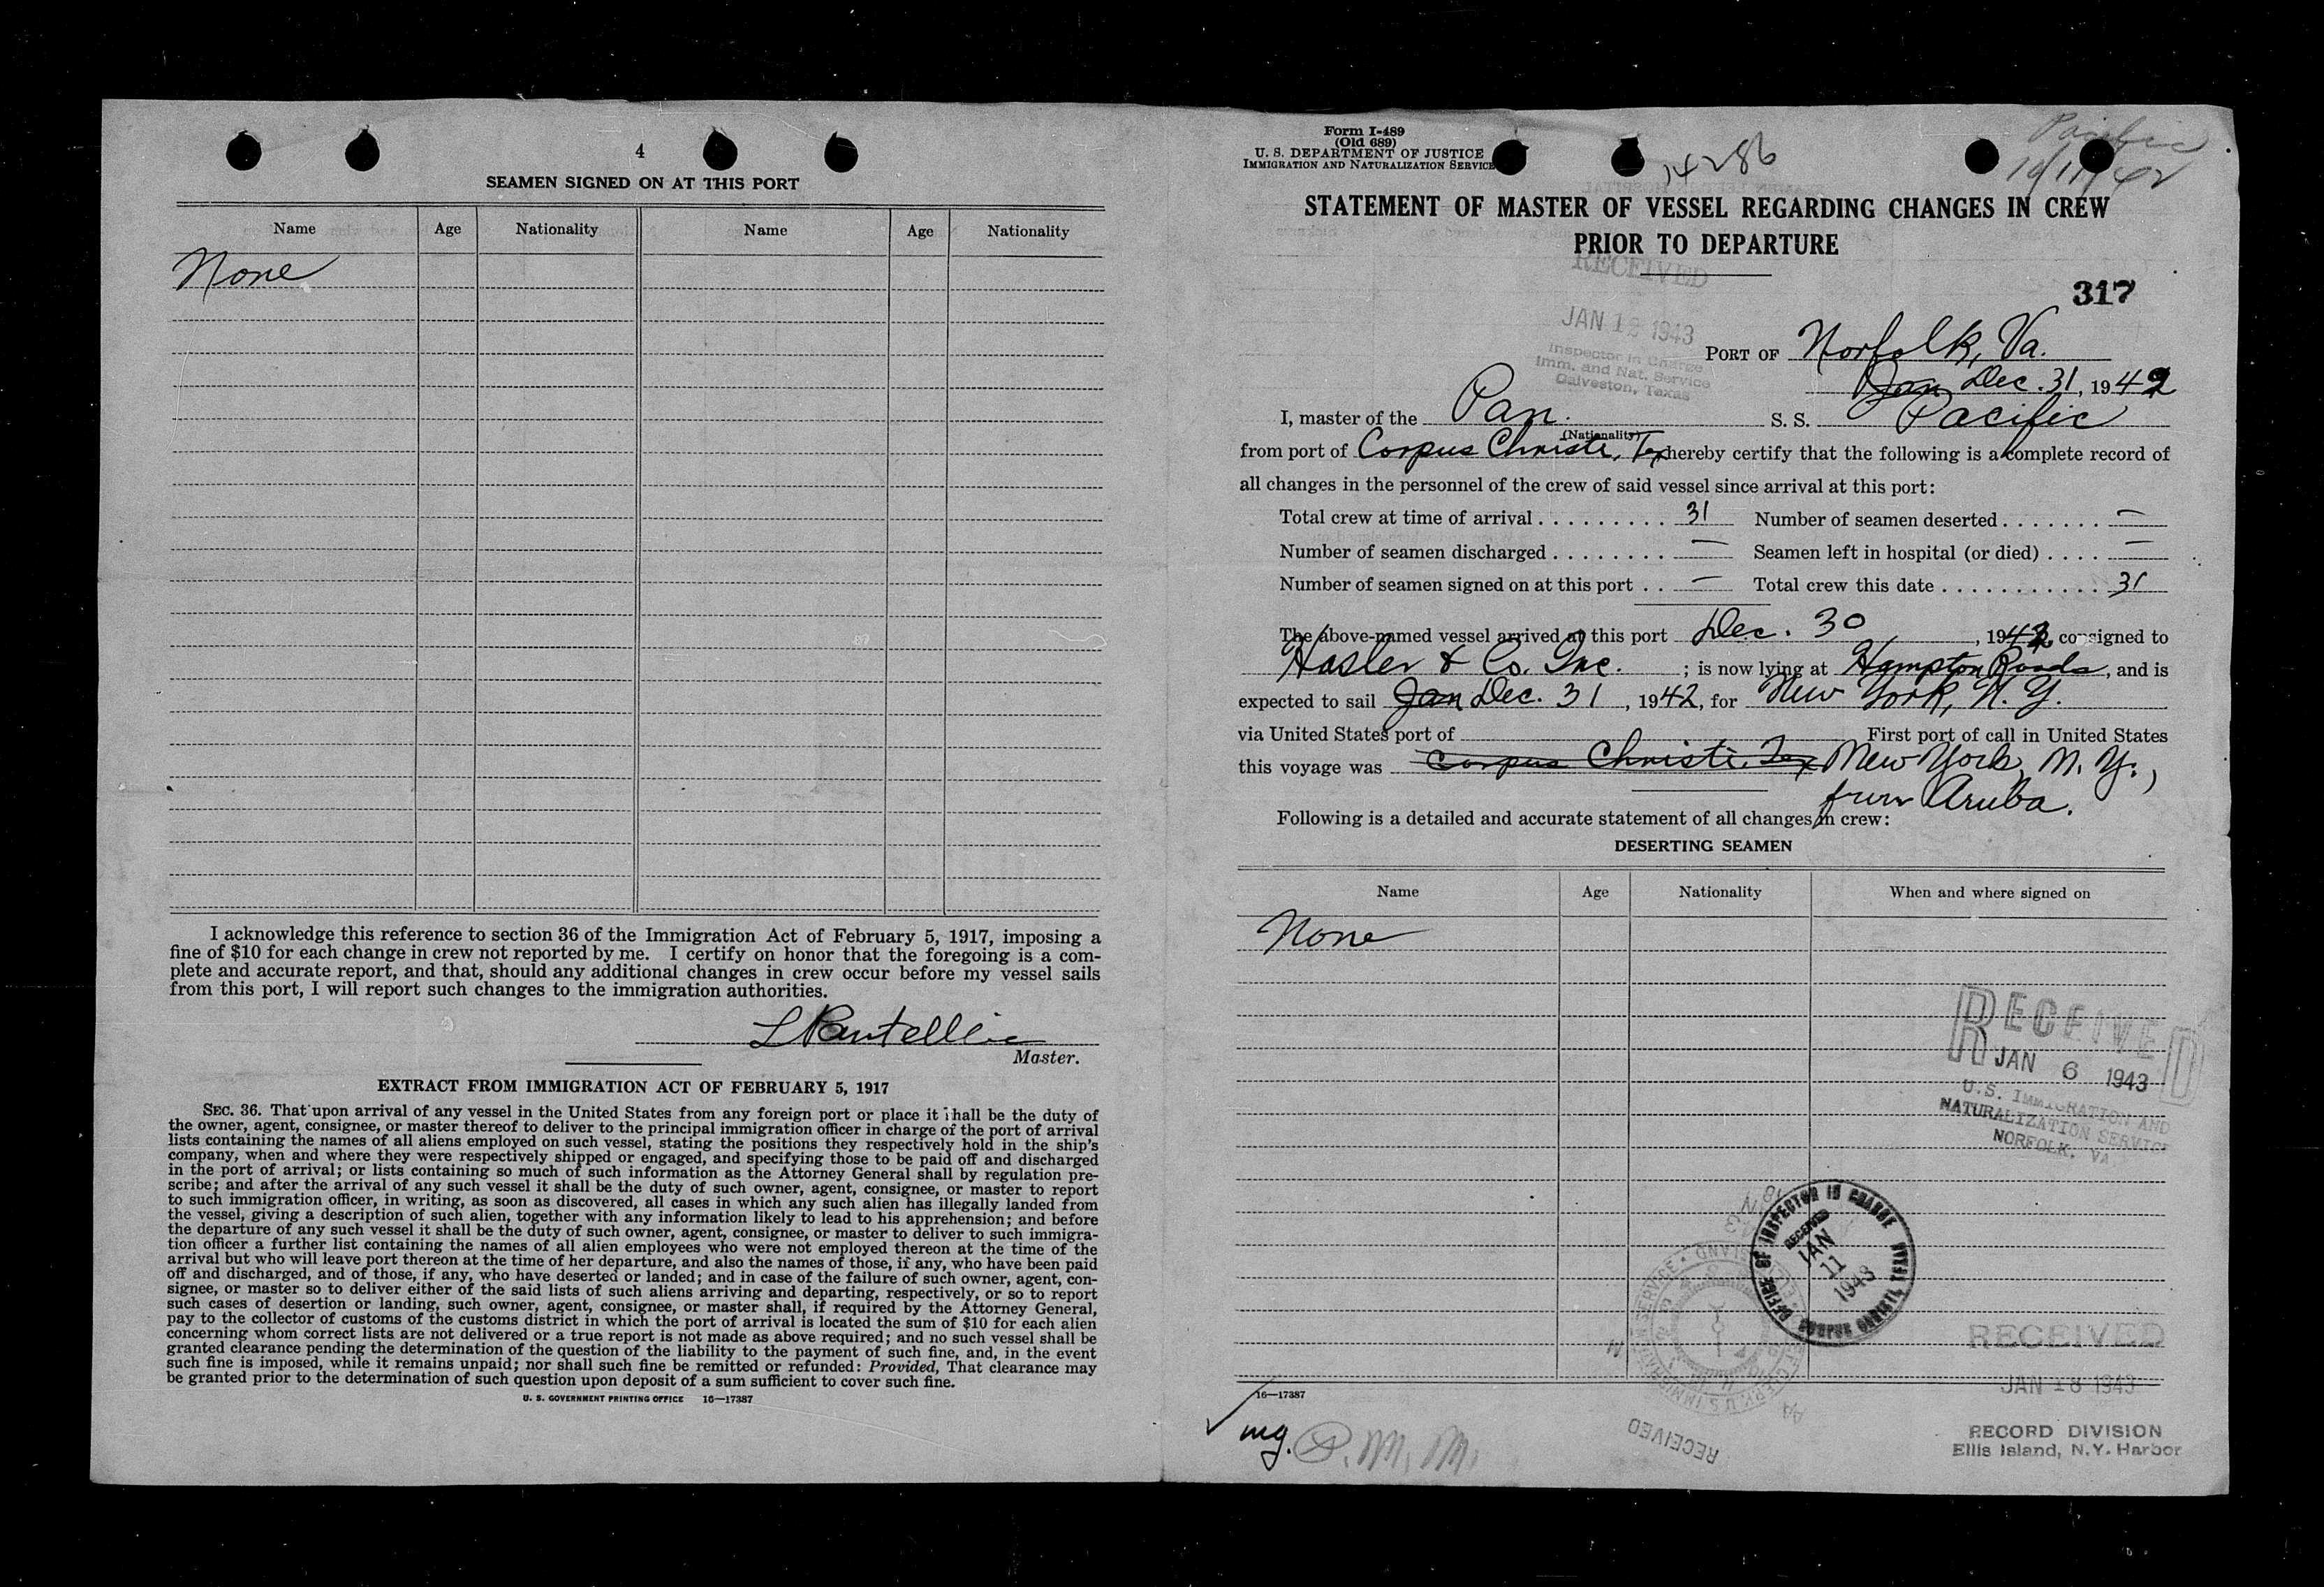 4
SEAMEN SIGNED ON AT THIS PORT
Name Age Nationality Name Age Nationality
None
I acknowledge this reference to section 36 of the Immigration Act of February 5, 1917, imposing a
fine of $10 for each change in crew not reported by me. I certify on honor that the foregoing is a com-
plete and accurate report, and that, should any additional changes in crew occur before my vessel sails
from this port, I will report such changes to the immigration authorities.
Master.
EXTRACT FROM IMMIGRATION ACT OF FEBRUARY 5, 1917
SEC. 36. That upon arrival of any vessel in the United States from any foreign port or place it shall be the duty of
the owner, agent, consignee, or master thereof to deliver to the principal immigration officer in charge of the port of arrival
lists containing the names of all aliens employed on such vessel, stating the positions they respectively hold in the ship's
company, when and where they were respectively shipped or engaged, and specifying those to be paid off and discharged
in the port of arrival; or lists containing so much of such information as the Attorney General shall by regulation pre-
scribe; and after the arrival of any such vessel it shall be the duty of such owner, agent, consignee, or master to report
to such immigration officer, in writing, as soon as discovered, all cases in which any such alien has illegally landed from
the vessel, giving a description of such alien, together with any information likely to lead to his apprehension; and before
the departure of any such vessel it shall be the duty of such owner, agent, consignee, or master to deliver to such immigra-
tion officer a further list containing the names of all alien employees who were not employed thereon at the time of the
arrival but who will leave port thereon at the time of her departure, and also the names of those, if any, who have been paid
off and discharged, and of those, if any, who have deserted or landed; and in case of the failure of such owner, agent, con-
signee, or master so to deliver either of the said lists of such aliens arriving and departing, respectively, or so to report
such cases of desertion or landing, such owner, agent, consignee, or master shall, if required by the Attorney General,
pay to the collector of customs of the customs district in which the port of arrival is located the sum of $10 for each alien
concerning whom correct lists are not delivered or a true report is not made as above required; and no such vessel shall be
granted clearance pending the determination of the question of the liability to the payment of such fine, and, in the event
such fine is imposed, while it remains unpaid; nor shall such fine be remitted or refunded: Provided, That clearance may
be granted prior to the determination of such question upon deposit of a sum sufficient to cover such fine.
U. S. GOVERNMENT PRINTING OFFICE 16—17387
Form I-489
(Old 689)
U. S. DEPARTMENT OF JUSTICE
IMMIGRATION AND NATURALIZATION SERVICE
14286
Pacific
STATEMENT OF MASTER OF VESSEL REGARDING CHANGES IN CREW
PRIOR TO DEPARTURE
RECEIVED
317
JAN 19 1943
Inspector in Charge
Imm. and Nat. Service
Galveston, Texas
PORT OF Norfolk, Va.
Jan Dec. 31, 1942
I, master of the Pan. S. S. Pacific
(Nationality)
from port of Corpus Christi, Tex hereby certify that the following is a complete record of
all changes in the personnel of the crew of said vessel since arrival at this port:
Total crew at time of arrival . . . . . . . . . 31 Number of seamen deserted . . . . . . . —
Number of seamen discharged . . . . . . . . — Seamen left in hospital (or died) . . . . —
Number of seamen signed on at this port . . — Total crew this date . . . . . . . . . . . 31
The above-named vessel arrived at this port Dec. 30, 1942, consigned to
Hasler & Co. Inc. ; is now lying at Hampton Roads, and is
expected to sail Jan Dec. 31, 1942, for New York, N. Y.
via United States port of First port of call in United States
this voyage was Corpus Christi, Tex New York, N. Y.,
from Aruba.
Following is a detailed and accurate statement of all changes in crew:
DESERTING SEAMEN
Name Age Nationality When and where signed on
None
RECEIVED
JAN 6 1943
U.S. IMMIGRATION AND
NATURALIZATION SERVICE
NORFOLK, VA.
OFFICE OF INSPECTOR IN CHARGE
RECEIVED
JAN
11
1943
CORPUS CHRISTI, TEXAS
RECEIVED
JAN 18 1943
16—17387
RECEIVED
mg. P. M. M.
RECORD DIVISION
Ellis Island, N.Y. Harbor